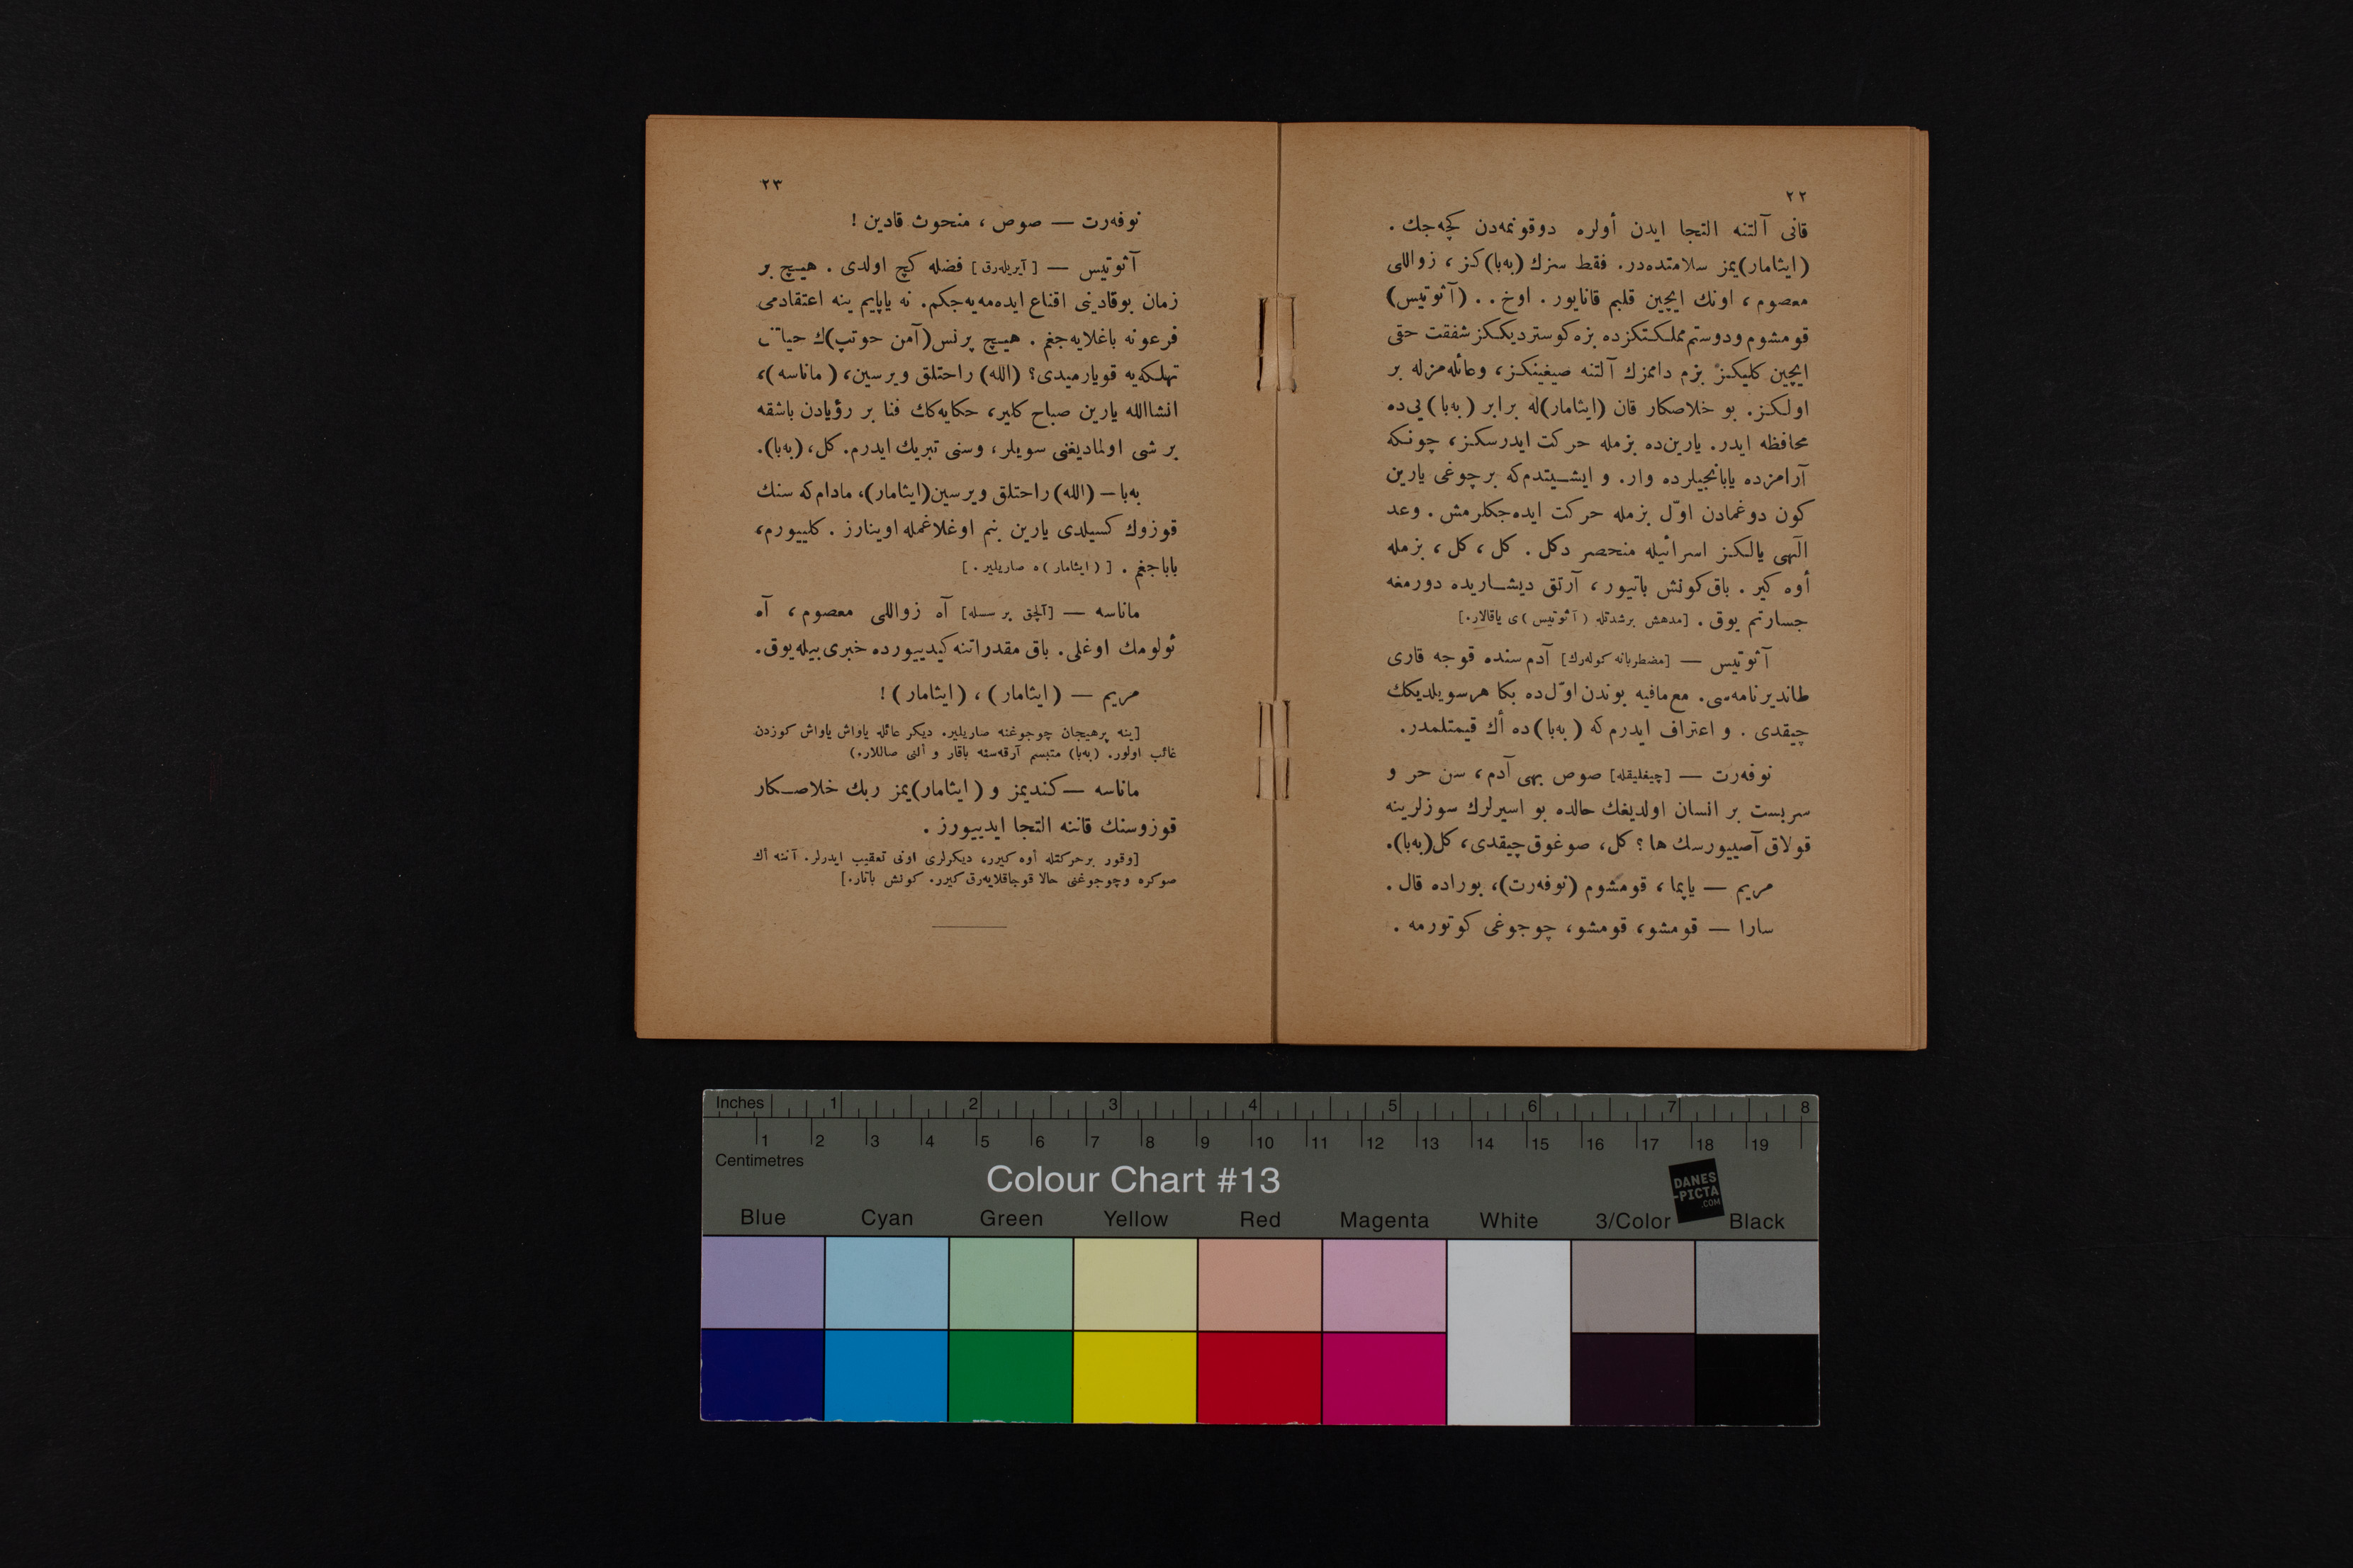 ٢٢
قانی آلتنه التجا ایدن أولره دوقونمه‌دن كچه‌جك .
(ایثامار)یمز سلامتده‌در. فقط سنزك (به‌با)كز ، زواللی
معصوم ، اونك ایچین قلبم قانایور . اوخ . . (آثوتیس)
قومشوم ودوستم مملكتكزده بزه كوسترديككز شفقت حقی
ایچین كلیكز بزم داممزك آلتنه صیغینكز، وعائله‌مزله بر
اولكز. بو خلاصكار قان (ایثامار)له برابر (به‌با)یی‌ده
محافظه ایدر. یارین‌ده بزمله حركت ایدرسكز، چونكه
آرامزده یابانجیلرده وار. و ایشیتدم‌كه برچوغی یارین
كون دوغمادن اوّل بزمله حركت ایده‌جكلرمش . وعد
الٓهی یالكز اسرائیله منحصر دكل . كل ، كل ، بزمله
أوه كیر . باق كونش باتیور ، آرتق دیشاریده دورمغه
جسارتم یوق . [مدهش برشدتله (آثوتیس)ی یاقالار.]
آثوتیس — [مضطربانه كوله‌رك] آدم سنده قوجه قاری
طاندیرنامه‌سی. مع‌مافیه بوندن اوّل‌ده بكا هرسویلديكك
چیقدی . و اعتراف ایدرم كه (به‌با)ده أك قیمتلمدر.
نوفه‌رت — [چیغلیقله] صوص بهی آدم ، سن حر و
سربست بر انسان اولدیغك حالده بو اسیرلرك سوزلرینه
قولاق آصییورسك ها ؟ كل، صوغوق چیقدی ، كل(به‌با).
مریم — یاپما ، قومشوم (نوفه‌رت)، بوراده قال .
سارا — قومشو، قومشو، چوجوغی كوتورمه .
٢٣
نوفه‌رت — صوص ، منحوث قادین !
آثوتیس — [آیریله‌رق] فضله كچ اولدی . هیچ بر
زمان بوقادینی اقناع ایده‌مه‌یه‌جكم. نه یاپایم ینه اعتقادمی
فرعونه باغلایه‌جغم . هیچ پرنس(آمن حوتپ)ك حیاتی
تهلكه‌یه قویارمیدی؟ (الله) راحتلق ویرسین، (ماناسه)،
انشاالله یارین صباح كلیر، حكایه‌كك فنا بر رؤیادن باشقه
بر شی اولمادیغنی سویلر، وسنی تبریك ایدرم. كل، (به‌با).
به‌با — (الله) راحتلق ویرسین(ایثامار)، مادام‌كه سنك
قوزوك كسیلدی یارین بنم اوغلاغمله اوینارز . كلییورم،
باباجغم . [(ایثامار)ه صاریلیر.]
ماناسه — [آلچق بر سسله] آه زواللی معصوم ، آه
ئولومك اوغلی. باق مقدراتنه كیدییورده خبری بیله یوق.
مریم — (ایثامار) ، (ایثامار) !
[ینه پرهیجان چوجوغنه صاریلیر. دیكر عائله یاواش یاواش كوزدن
غائب اولور. (به‌با) متبسم آرقه‌سنه باقار و ألنی صاللار.)
ماناسه — كندیمز و (ایثامار)یمز ربك خلاصكار
قوزوسنك قاننه التجا ایدییورز .
[وقور برحركتله أوه كیرر، دیكرلری اونی تعقیب ایدرلر. آننه أك
صوكره وچوجوغنی حالا قوجاقلایه‌رق كیرر. كونش باتار.]
Inches 1 2 3 4 5 6 7 8
1 2 3 4 5 6 7 8 9 10 11 12 13 14 15 16 17 18 19
Centimetres
Colour Chart #13
DANES
-PICTA
.COM
Blue Cyan Green Yellow Red Magenta White 3/Color Black